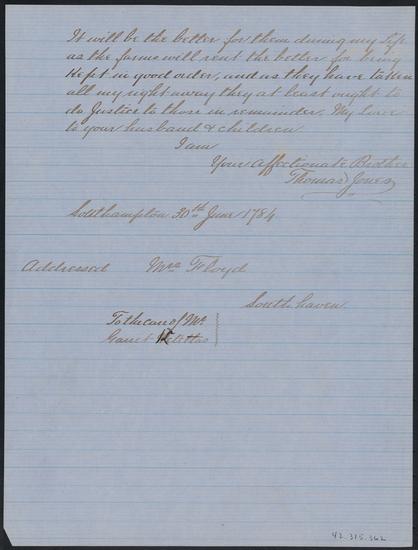 It will be the better for them during my Life
as the farms will rent the better for being
Kept in good order, and as they have taken
all my right away they at least ought to
do Justice to those in remainder. My Love
to your husband & children
I am
Your Affectionate Brother
Thomas Jones
Southampton 30th June 1784
Addressed Mrs Floyd
South haven
To the care of Mr
Garret
42.315.362